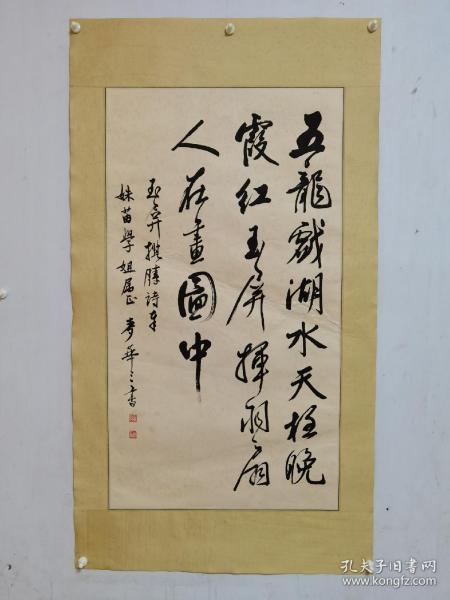 五龍戲湖水天柱晚
霞紅玉屏揮羽扇
人在畫圖中
玉屏攬勝詩奉
妹苗學姐屬正 麦華三書
孔夫子旧书网
www.kongfz.com